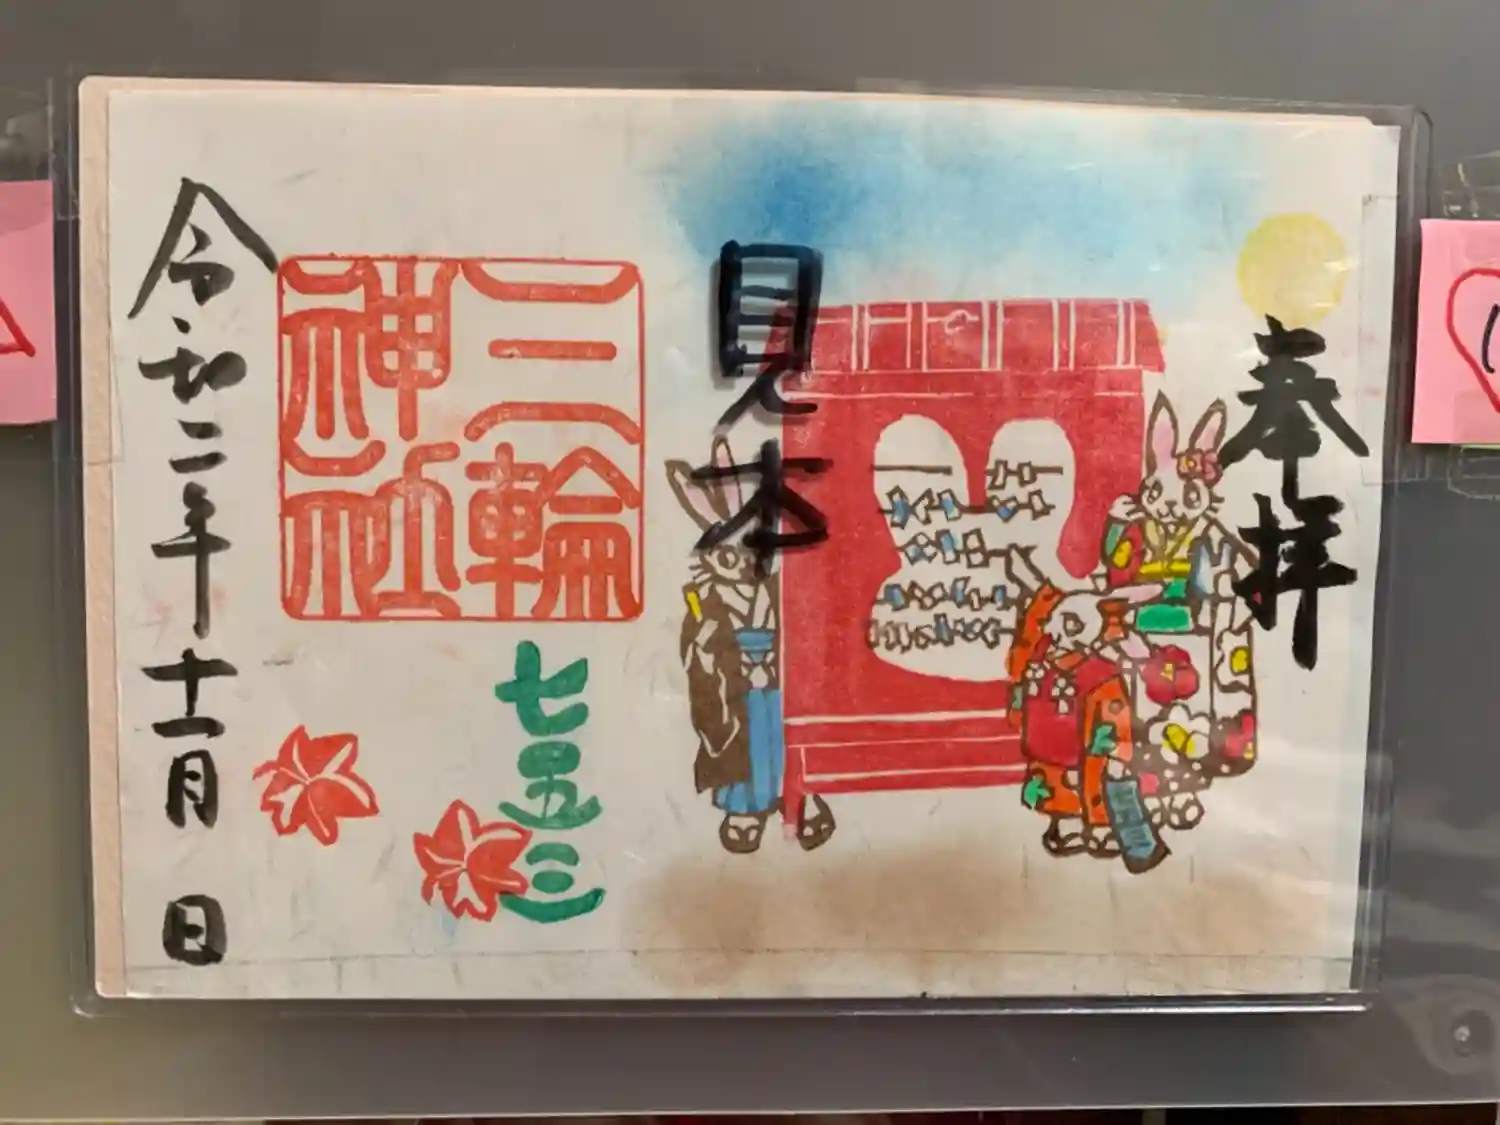 奉拝
見本
三輪
神社
七五三
令和二年十一月 日